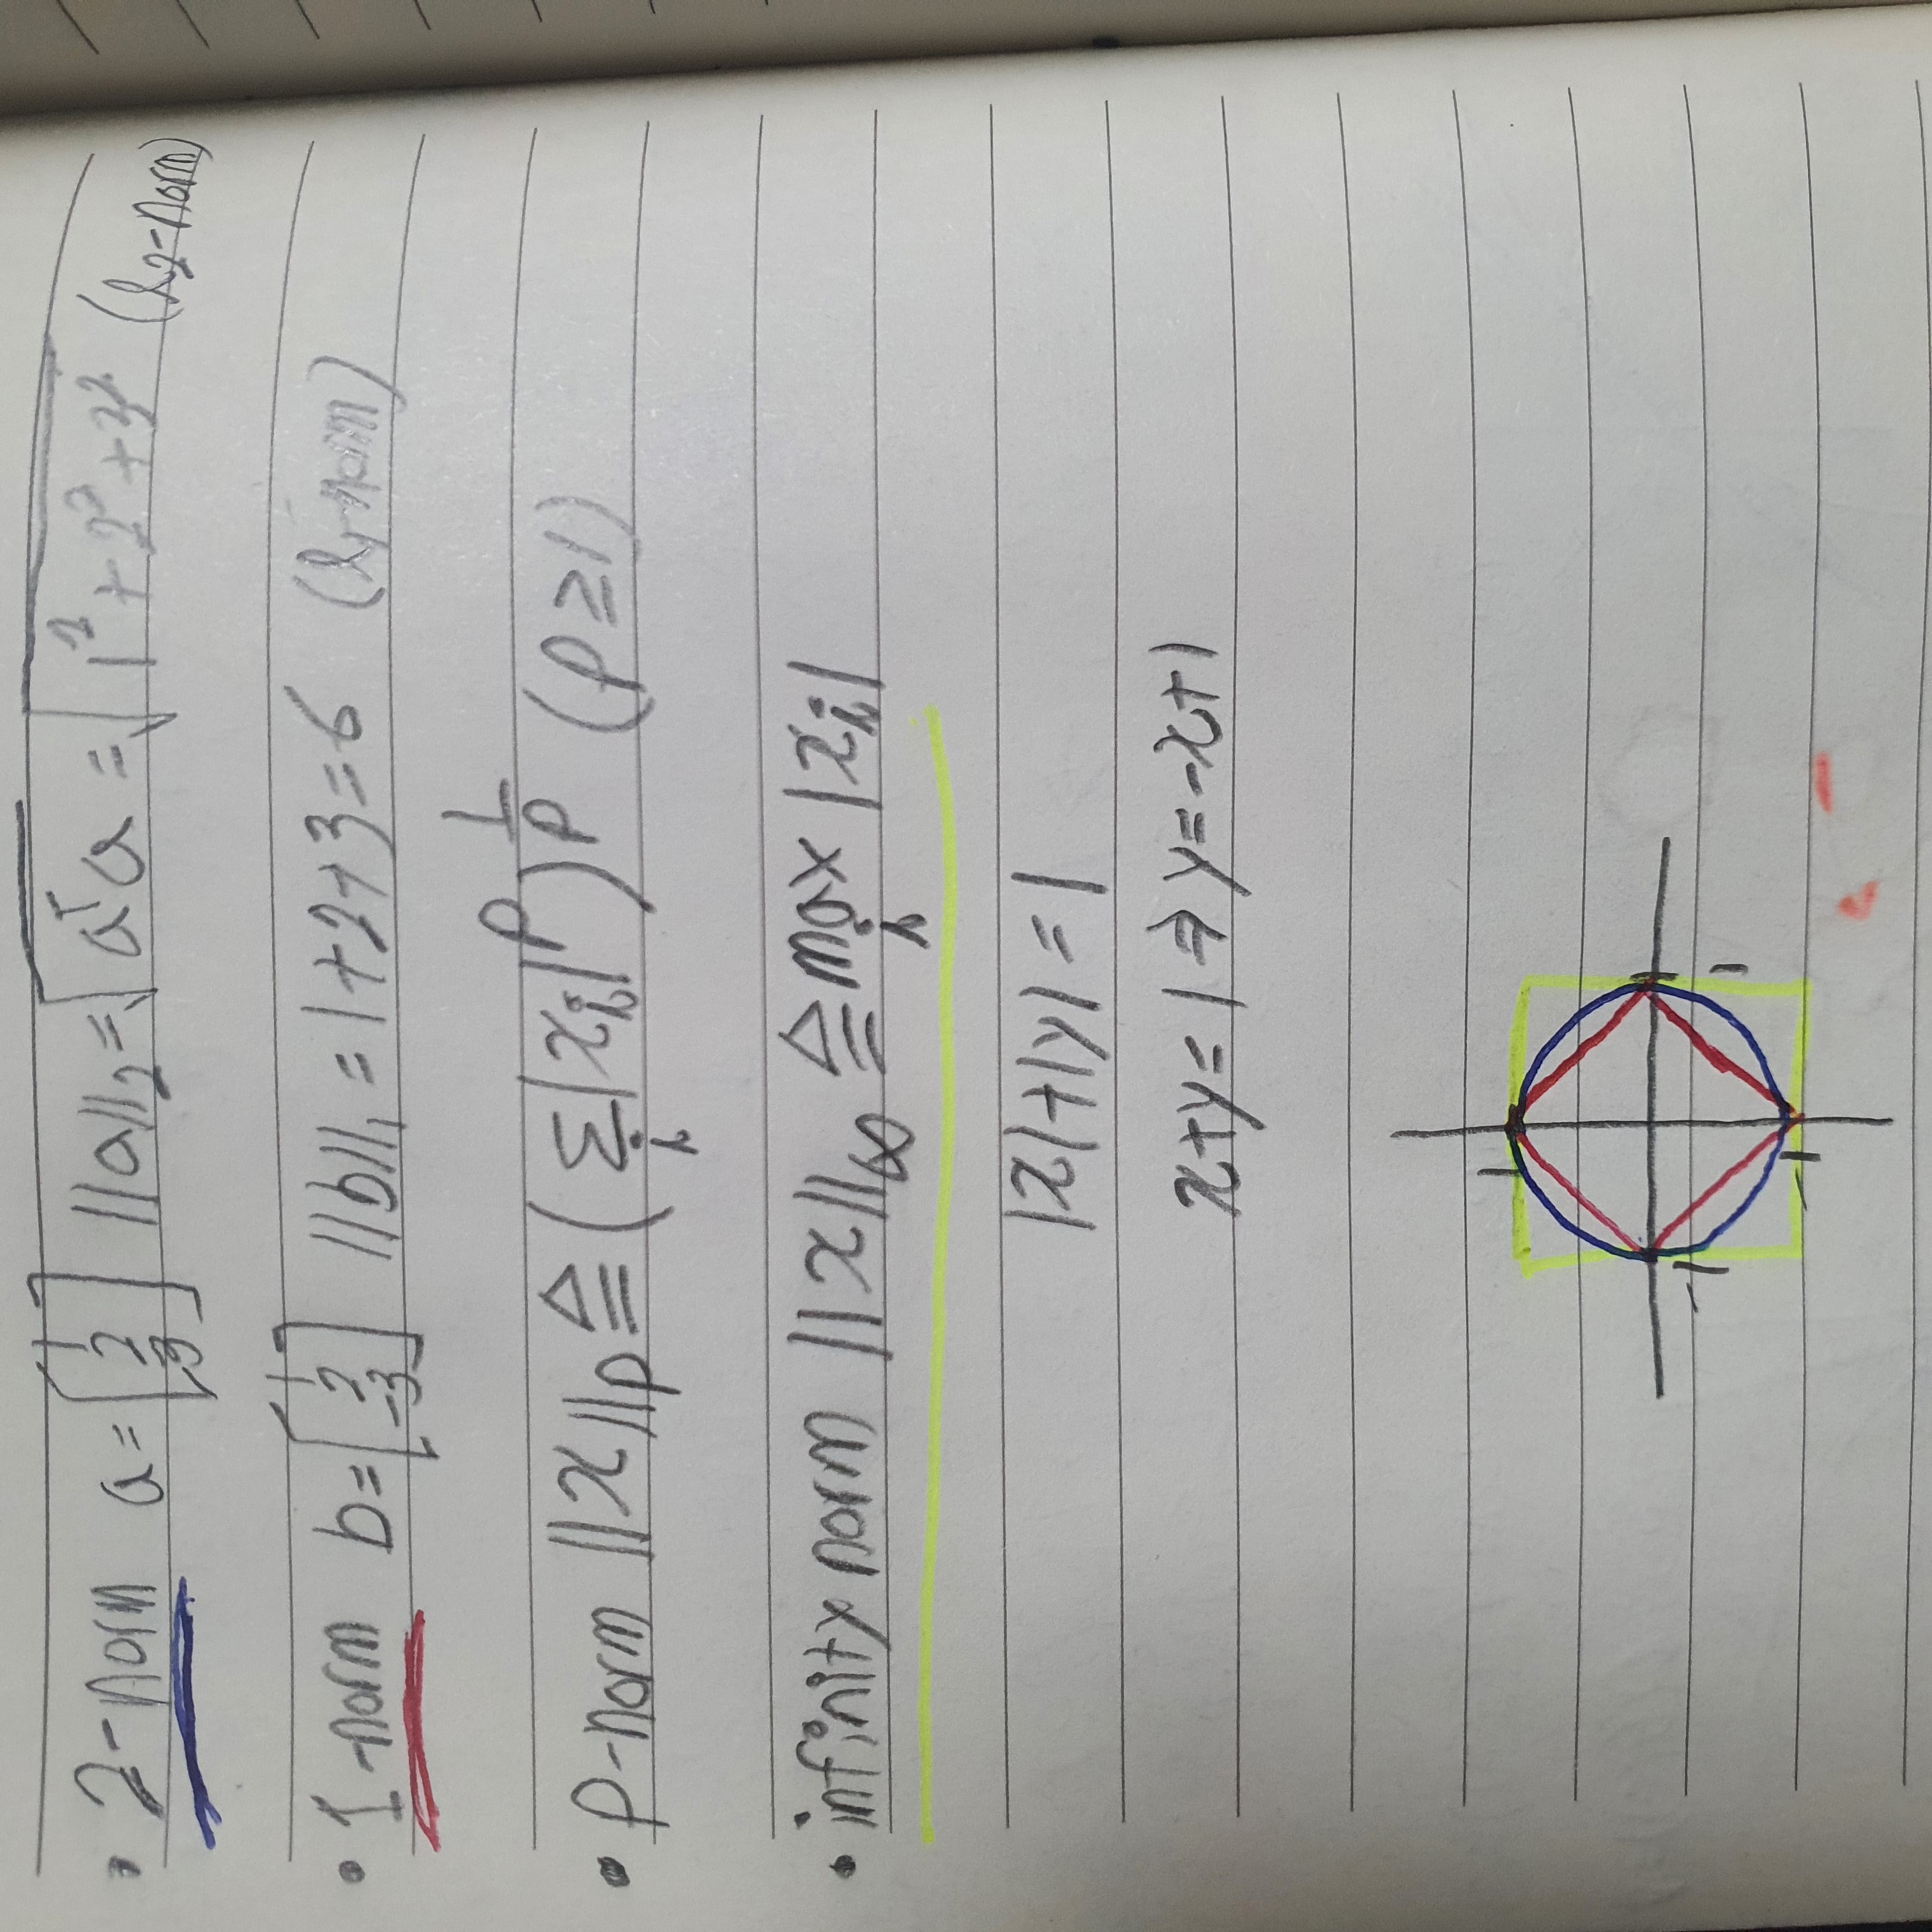 • 2-norm a = [1 2 3] ||a||₂ = √(aᵀa) = √(1² + 2² + 3²) (l₂-norm)
• 1-norm b = [1 2 -3] ||b||₁ = 1+2+3 = 6 (l₁-norm)
• p-norm ||x||p ≜ (Σᵢ |xᵢ|^p)^(1/p) (p ≥ 1)
• infinity norm ||x||∞ ≜ maxᵢ |xᵢ|
|x|+|y| = 1
x+y = 1 ⇒ y = -x+1
1
-1 1
-1